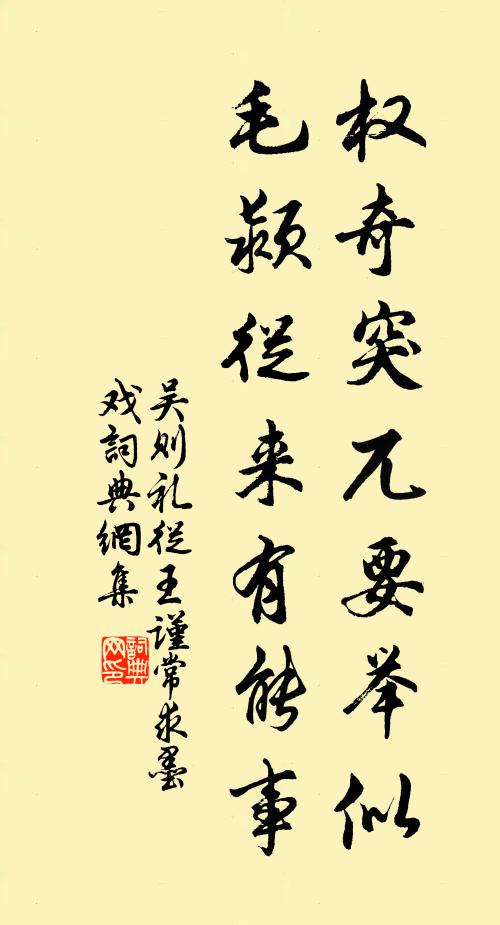 权奇突兀要举似
毛颖从来有能事
吴则礼從王谨常求墨
戏詞典網集
詞典網印